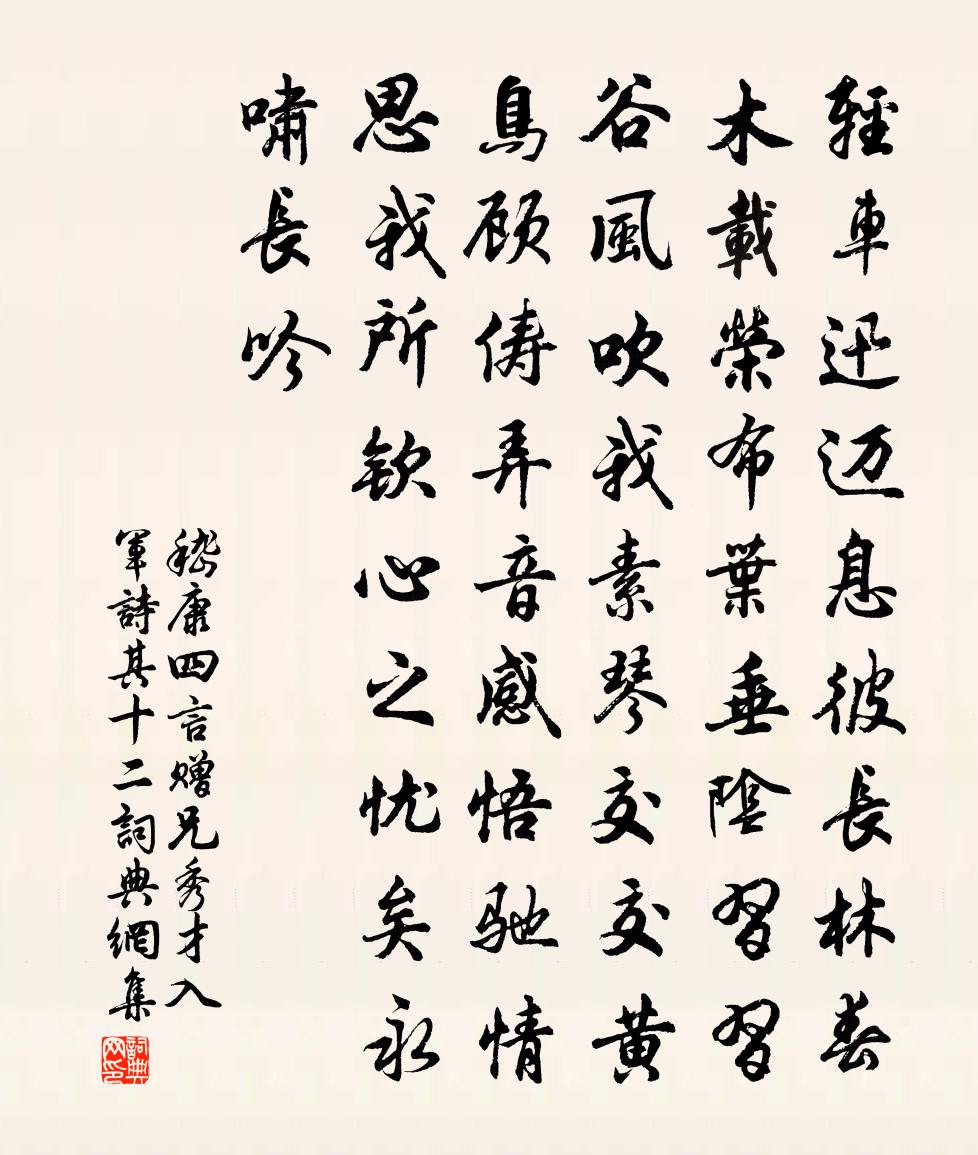 輕車迅迈息彼長林春
木載榮布葉垂陰習習
谷風吹我素琴交交黄
鳥顾俦弄音感悟驰情
思我所钦心之忧矣永
嘯長吟
嵇康四言赠兄秀才入
軍詩其十二詞典網集
詞典网印